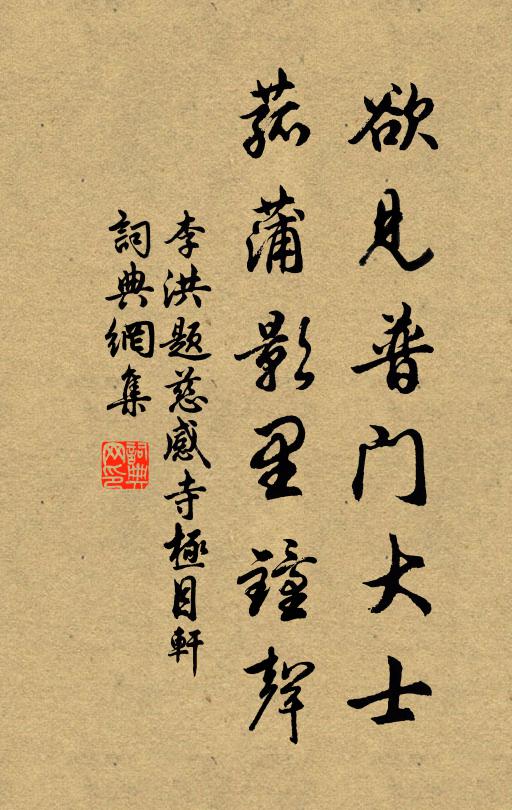 欲见普门大士
菰蒲影里鐘聲
李洪题慈感寺極目軒
詞典網集
詞典网印